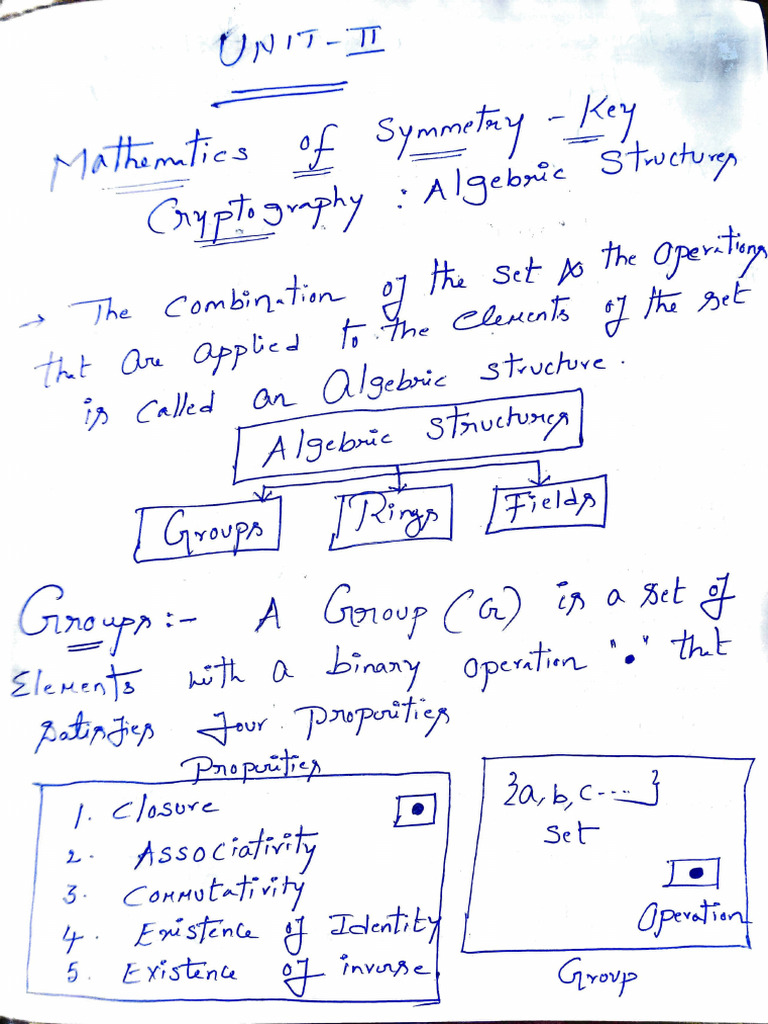 UNIT-II
Mathematics of Symmetry-Key
Cryptography : Algebric Structures
→ The Combination of the set & the Operations
that are applied to the Elements of the set
is called an Algebric structure.
Algebric structures
Groups Rings Fields
Groups :- A Group (G) is a set of
Elements with a binary operation "•" that
satisfies four properities
Properities
1. Closure
2. Associativity
3. Commutativity
4. Existence of Identity
5. Existence of inverse
{a, b, c ----}
set
Operation
Group